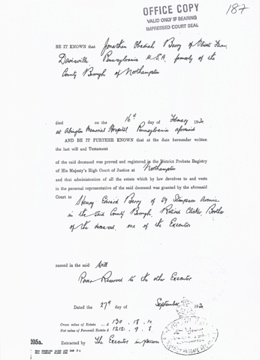 OFFICE COPY
VALID ONLY IF BEARING
IMPRESSED COURT SEAL
187
BE IT KNOWN that Jonathan Obadiah Perry of
Pennsylvania U.S.A. formerly of the
County Borough of Northampton
died on the 16th day of February
at Abington Memorial Hospital Pennsylvania aforesaid
AND BE IT FURTHER KNOWN that at the date hereunder written
the last will and Testament
of the said deceased was proved and registered in the District Probate Registry
of His Majesty's High Court of Justice at Northampton
and that administration of all the estate which by law devolves to and vests
in the personal representative of the said deceased was granted by the aforesaid
Court to Henry Edward Perry of 69 Avenue
in the said County Borough, Retired Brother
of the deceased, one of the Executors
named in the said will
Power Reserved to the other Executor
Dated the 27th day of September
Gross value of Estate
Net value of Personal Estate
Extracted by The Executor in person